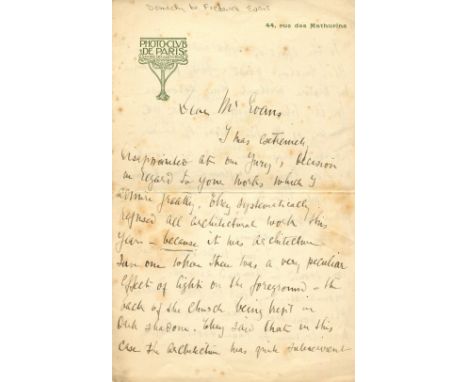 Demachy to Frederick Evans
44, rue des Mathurins
PHOTO-CLUB
DE PARIS
Dear Mr Evans
I was extremely
disappointed at our Jury's decision
in regard to your works which I
admire greatly. They systematically
refused all architectural work this
year – because it was architecture
Save one when there was a very peculiar
effect of light on the foreground – the
back of the Church being kept in
dark shadow. They said that in this
case the architecture was quite subservient